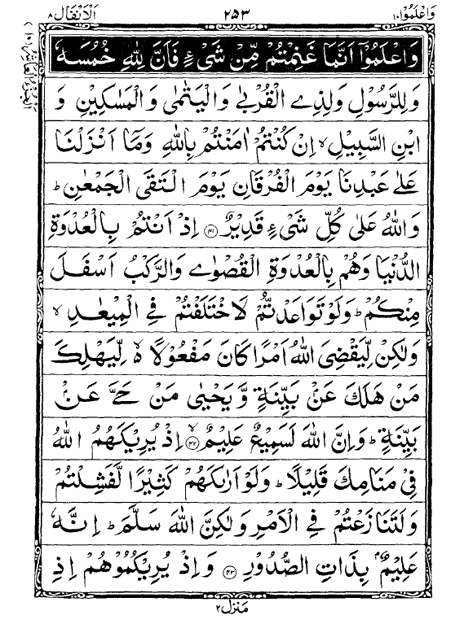 وَاعْلَمُوْٓا ۱۰ ۲۵۳ الْاَنْفَال ۸
وَاعْلَمُوْٓا اَنَّمَا غَنِمْتُمْ مِّنْ شَىْءٍ فَاَنَّ لِلّٰهِ خُمُسَهٗ
وَلِلرَّسُوْلِ وَلِذِى الْقُرْبٰى وَالْيَتٰمٰى وَالْمَسٰكِيْنِ وَ
ابْنِ السَّبِيْلِ ۙ اِنْ كُنْتُمْ اٰمَنْتُمْ بِاللّٰهِ وَمَآ اَنْزَلْنَا
عَلٰى عَبْدِنَا يَوْمَ الْفُرْقَانِ يَوْمَ الْتَقَى الْجَمْعٰنِ ؕ
وَاللّٰهُ عَلٰى كُلِّ شَىْءٍ قَدِيْرٌ ﴿۴۱﴾ اِذْ اَنْتُمْ بِالْعُدْوَةِ
الدُّنْيَا وَهُمْ بِالْعُدْوَةِ الْقُصْوٰى وَالرَّكْبُ اَسْفَلَ
مِنْكُمْ ؕ وَلَوْ تَوَاعَدْتُّمْ لَاخْتَلَفْتُمْ فِى الْمِيْعٰدِ ۙ
وَلٰكِنْ لِّيَقْضِىَ اللّٰهُ اَمْرًا كَانَ مَفْعُوْلًا ۙ لِّيَهْلِكَ
مَنْ هَلَكَ عَنْۢ بَيِّنَةٍ وَّيَحْيٰى مَنْ حَىَّ عَنْۢ
بَيِّنَةٍ ؕ وَاِنَّ اللّٰهَ لَسَمِيْعٌ عَلِيْمٌ ﴿۴۲﴾ اِذْ يُرِيْكَهُمُ اللّٰهُ
فِىْ مَنَامِكَ قَلِيْلًا ؕ وَلَوْ اَرٰىكَهُمْ كَثِيْرًا لَّفَشِلْتُمْ
وَلَتَنَازَعْتُمْ فِى الْاَمْرِ وَلٰكِنَّ اللّٰهَ سَلَّمَ ؕ اِنَّهٗ
عَلِيْمٌۢ بِذَاتِ الصُّدُوْرِ ﴿۴۳﴾ وَاِذْ يُرِيْكُمُوْهُمْ اِذِ
منزل ۲